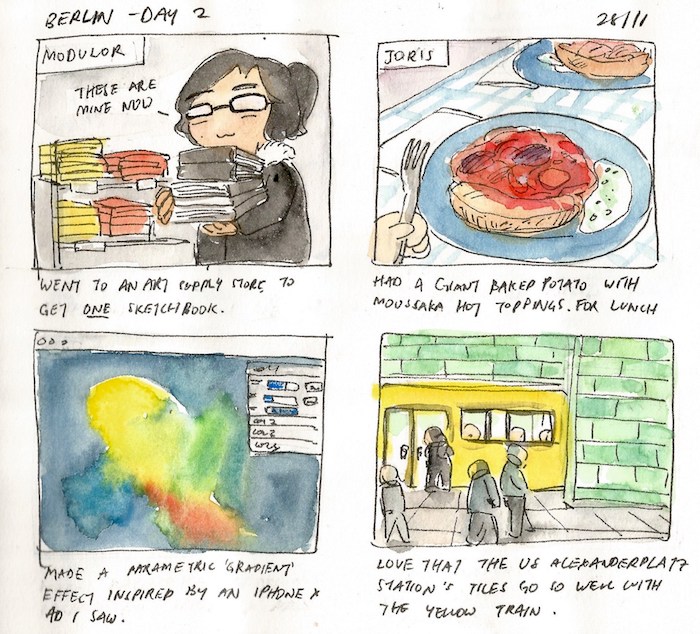 BERLIN - DAY 2
28/11
MODULOR
THESE ARE
MINE NOW
WENT TO AN ART SUPPLY STORE TO
GET ONE SKETCHBOOK.
JORIS
HAD A GIANT BAKED POTATO WITH
MOUSSAKA HOT TOPPINGS. FOR LUNCH
MADE A PARAMETRIC 'GRADIENT'
EFFECT INSPIRED BY AN IPHONE X
AD I SAW.
LOVE THAT THE U8 ALEXANDERPLATZ
STATION'S TILES GO SO WELL WITH
THE YELLOW TRAIN.